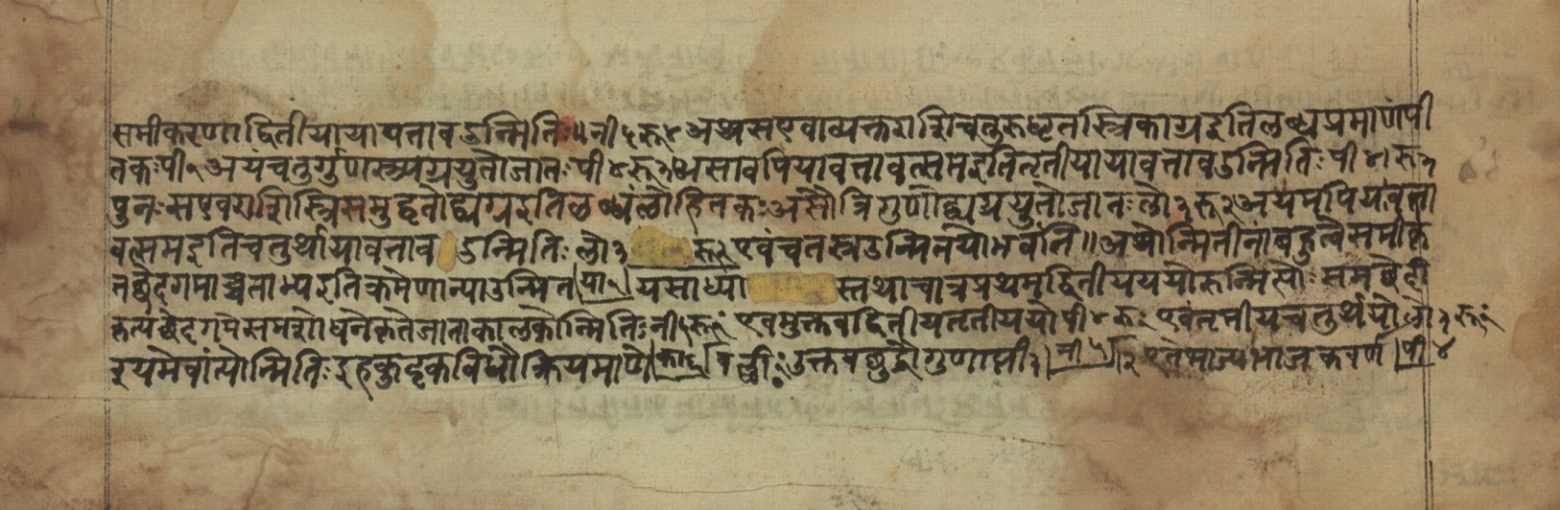 समीकरणाद्वितीयायावत्तावउन्मितिः॥नी५रू४अथसएवाव्यक्तराशिचतुरुद्धृतस्त्रिकाग्रइतिलब्धप्रमाणंपी
तकःपी१अयंचतुर्गुणस्त्र्यग्रयुतोजातःपी४रू३असावपियावत्तावत्समइतितृतीयायावत्तावउन्मितिःपी४रू३
पुनःसएवराशिस्त्रिसमुद्धृतोद्व्यग्रइतिलब्धंलोहितकःअसौत्रिगुणोद्व्यग्रयुतोजातःलो३रू२अयमपियावत्ता
वत्समइतिचतुर्थीयावत्ताव उन्मितिःलो३ रू२एवंचतस्रउन्मितयोभवंति॥अथोन्मितीनांबहुत्वेसमीकृ
तच्छेदगमाच्चताभ्यइतिक्रमेणान्याउन्मित या१ यसाध्या स्तथाचात्रप्रथमद्वितीययोरुन्मित्योः समच्छेदी
कृत्यछेदगमेसमशोधनेकृतेजाताकालकोन्मितिःनी५रू१ एवमुक्तवद्वितीयतृतीययोपी४रू१ एवंतृतीयचतुर्थयोलो३रू१
इयमेवांत्योन्मितिःइहकुट्टकविधौक्रियमाणे का६ वल्ली उक्तवछुद्धौगुणाप्ती नी५ एतेभाज्यभाजकवर्ण पी४